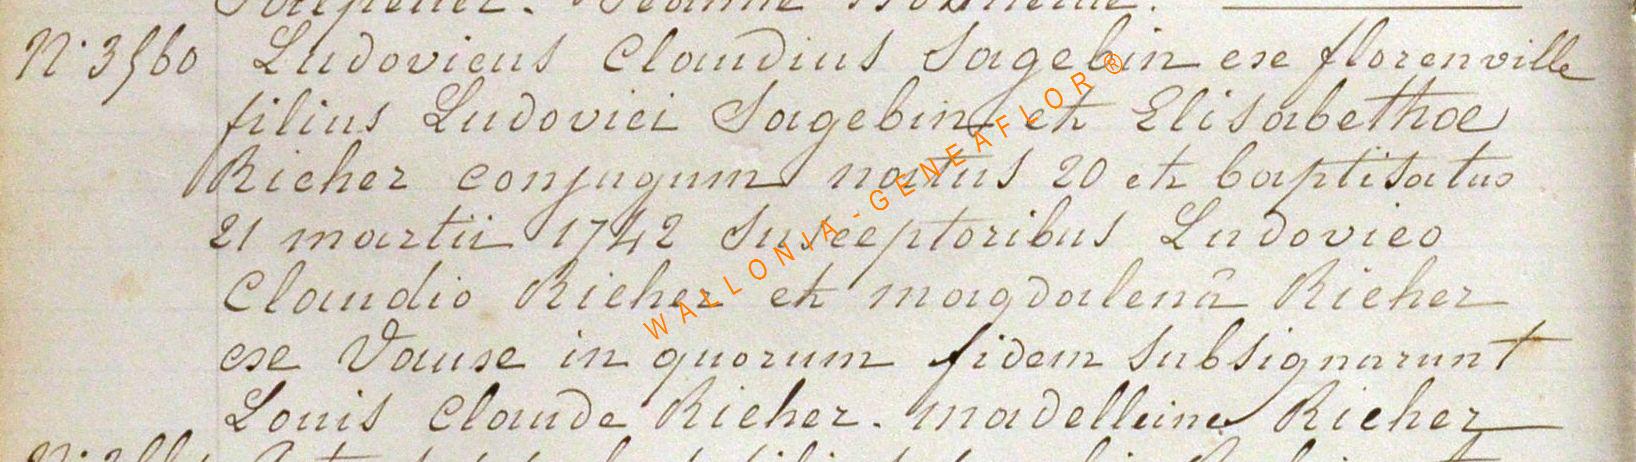 N° 3560 Ludovicus Claudius Sagebin ex florenville
filius Ludovici Sagebin et Elisabethae
Richer conjugum natus 20 et baptisatus
21 martii 1742 Susceptoribus Ludovico
Claudio Richer et magdalenâ Richer
ex Vause in quorum fidem subsignarunt
Louis Claude Richer. madelleine Richer
WALLONIA-GENEAFLOR®